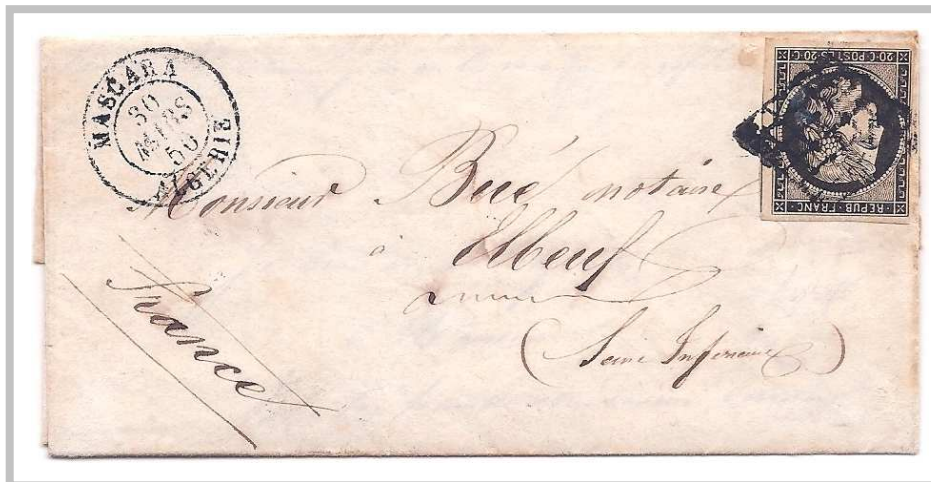 MASCARA
30
MARS
50
ALGERIE
20·C·POSTES·20·C
REPUB·FRANC
Monsieur notaire
à
Elbeuf
(Seine Inferieure)
France